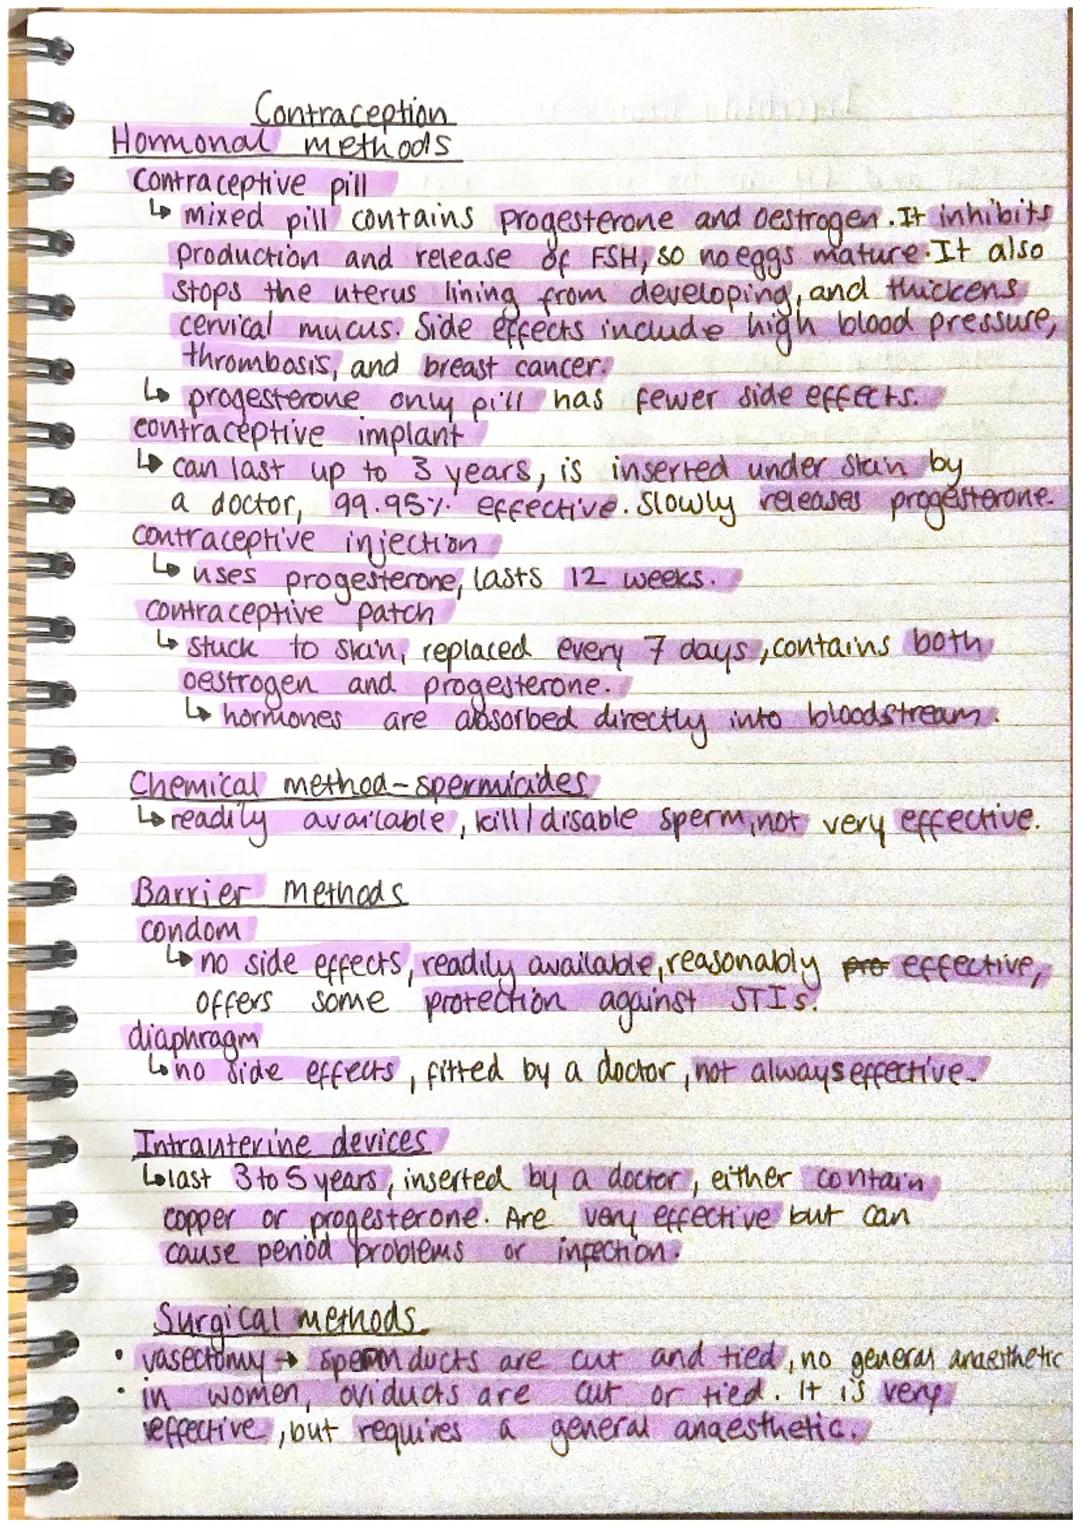 Contraception
Hormonal methods
Contraceptive pill
↳ mixed pill contains progesterone and oestrogen. It inhibits
production and release of FSH, so no eggs mature. It also
stops the uterus lining from developing, and thickens
cervical mucus. Side effects include high blood pressure,
thrombosis, and breast cancer.
↳ progesterone only pill has fewer side effects.
contraceptive implant
↳ can last up to 3 years, is inserted under skin by
a doctor, 99.95% effective. Slowly releases progesterone.
contraceptive injection
↳ uses progesterone, lasts 12 weeks.
contraceptive patch
↳ stuck to skin, replaced every 7 days, contains both
oestrogen and progesterone.
↳ hormones are absorbed directly into bloodstream.
Chemical method - spermicides
↳ readily available, kill/disable sperm, not very effective.
Barrier methods
condom
↳ no side effects, readily available, reasonably pro effective,
offers some protection against STIs.
diaphragm
↳ no side effects, fitted by a doctor, not always effective.
Intrauterine devices
↳ last 3 to 5 years, inserted by a doctor, either contain
copper or progesterone. Are very effective but can
cause period problems or infection.
Surgical methods
• vasectomy → sperm ducts are cut and tied, no general anaesthetic
• in women, oviducts are cut or tied. It is very
effective, but requires a general anaesthetic.